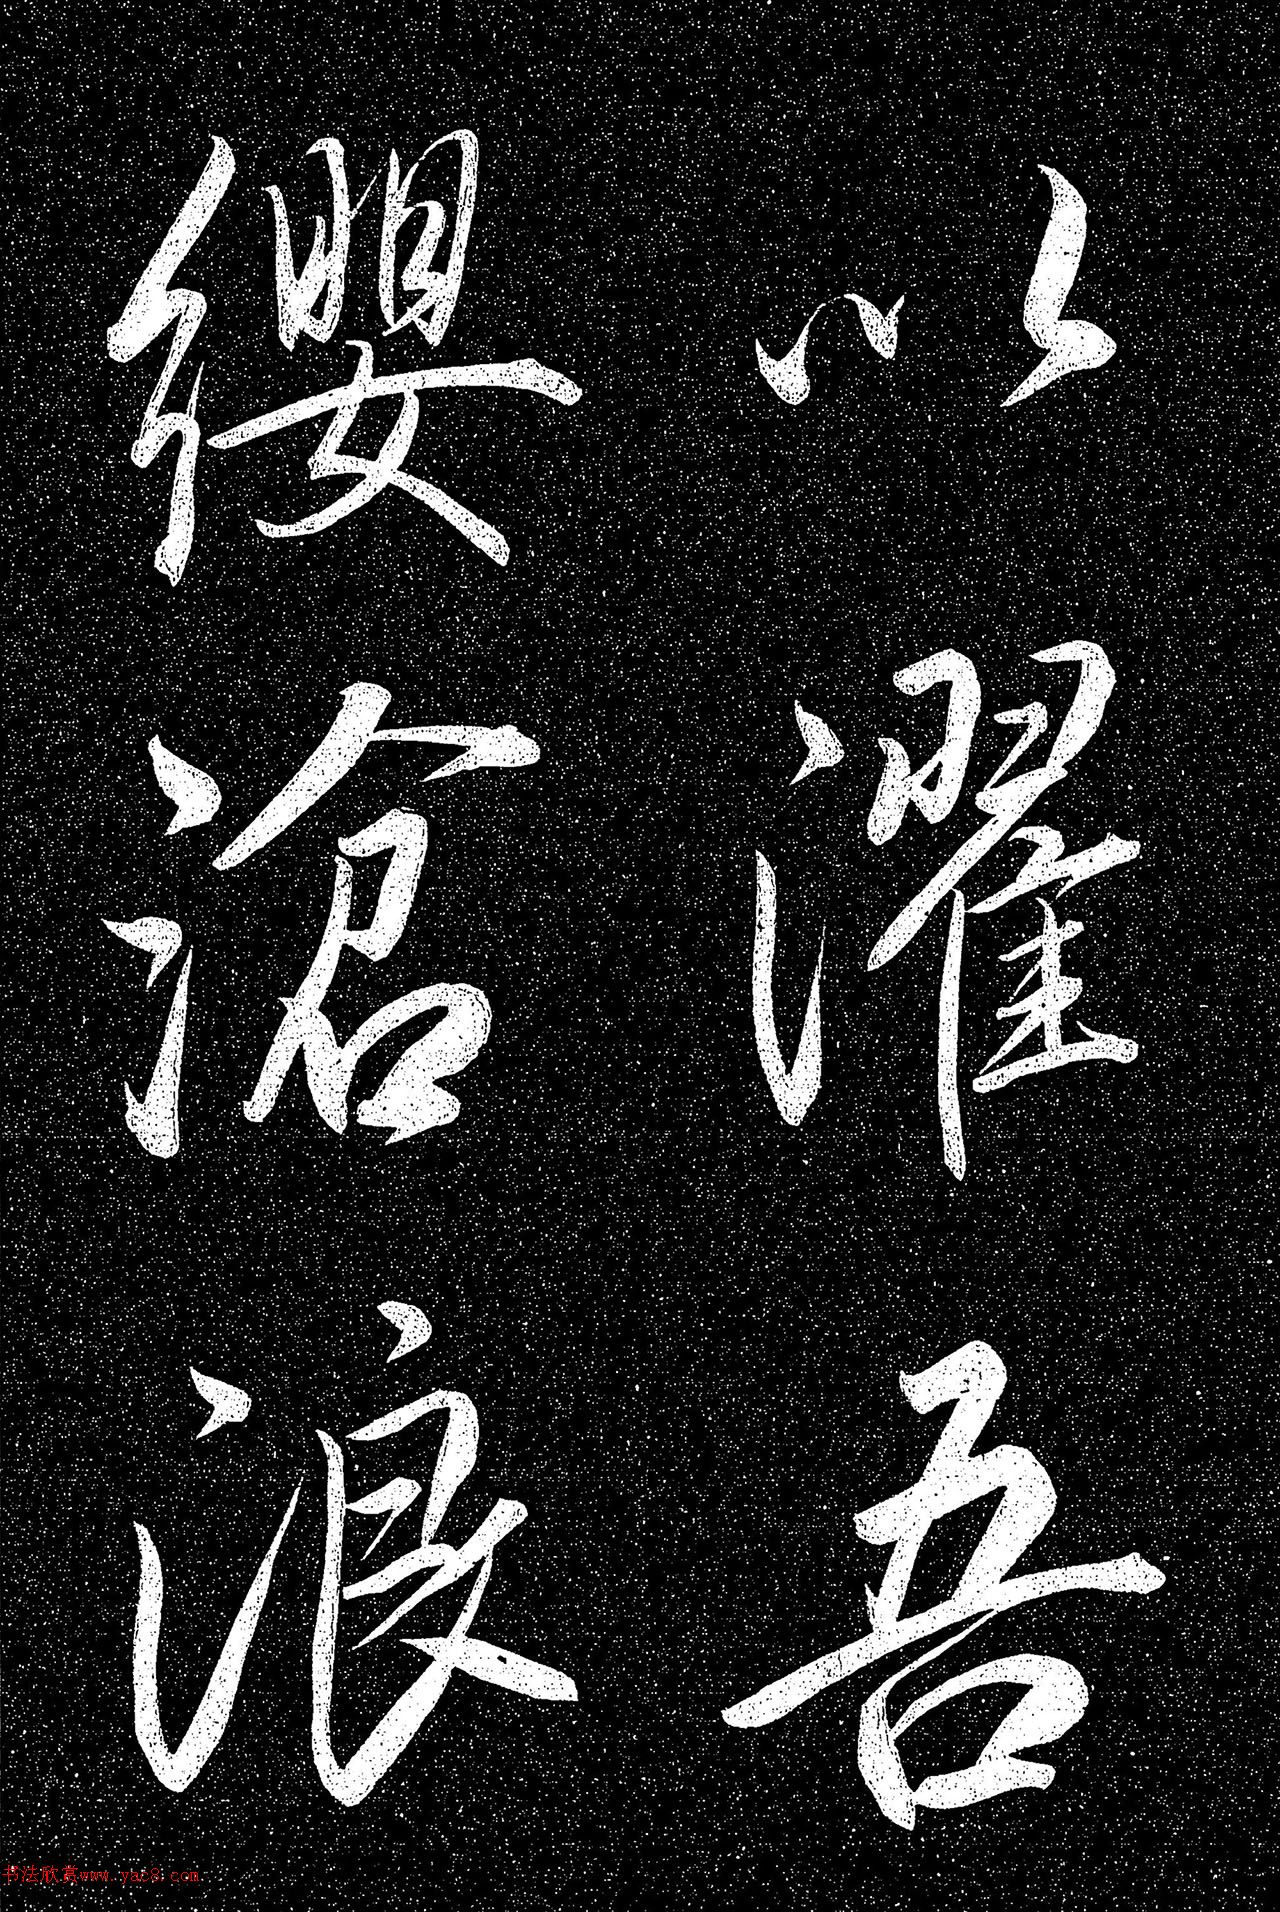 以濯吾
纓滄浪
书法欣赏www.yac8.com